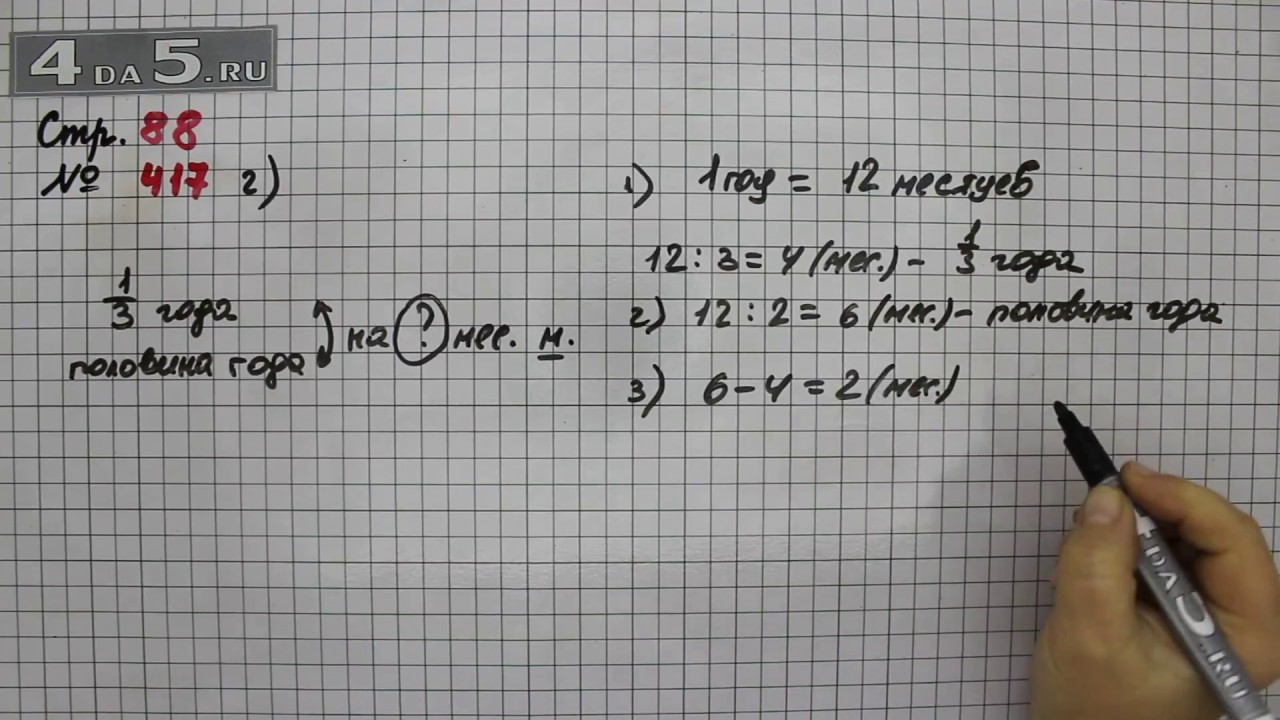 4DA5.RU
Стр. 88
№ 417 г)
1/3 года
половина года
на ? мес. м.
1) 1 год = 12 месяцев
12 : 3 = 4 (мес.) - 1/3 года
2) 12 : 2 = 6 (мес.) - половина года
3) 6 - 4 = 2 (мес.)
4DA5.RU